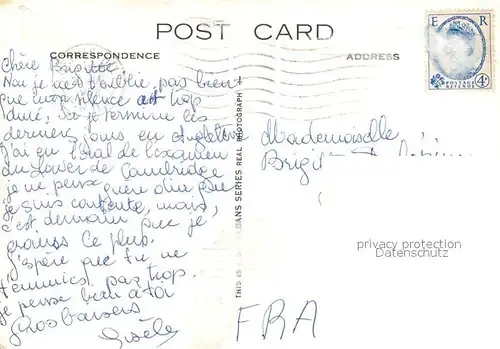 POST CARD
CORRESPONDENCE
ADDRESS
E R
POSTAGE
REVENUE
4d
Chère Brigitte
Non je ne t'oublie pas bien
que mon silence ait trop
duré, Ici je termine les
derniers jours en Angleterre
J'ai eu l'oral de l'examen
du Lower de Cambridge
je ne peux guère dire que
je suis contente, mais
c'est demain que je
l'aurais le plus.
J'espère que tu ne
t'ennuies pas trop.
je pense bien à toi
Gros baisers
Gisèle
THIS IS A SERIES REAL PHOTOGRAPH
Mademoiselle
FRA
privacy protection
Datenschutz